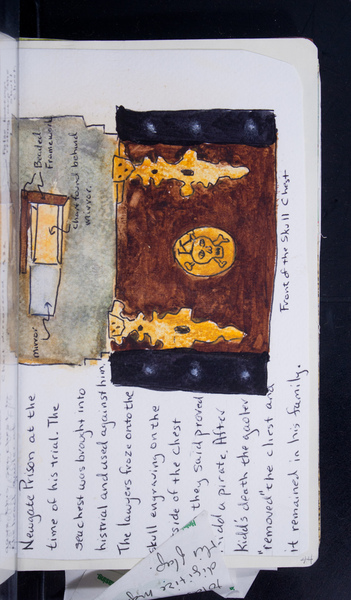 Newgate Prison at the
time of his trial. The
seachest was brought into
his trial and used against him.
The lawyers froze onto the
skull engraving on the
side of the chest
they said proved
Kidd a pirate. After
Kidd's death the gaoler
"removed" the chest and
it remained in his family.
mirror
Beaded
Framework
chart found behind
mirror.
K
Front of the Skull Chest
44